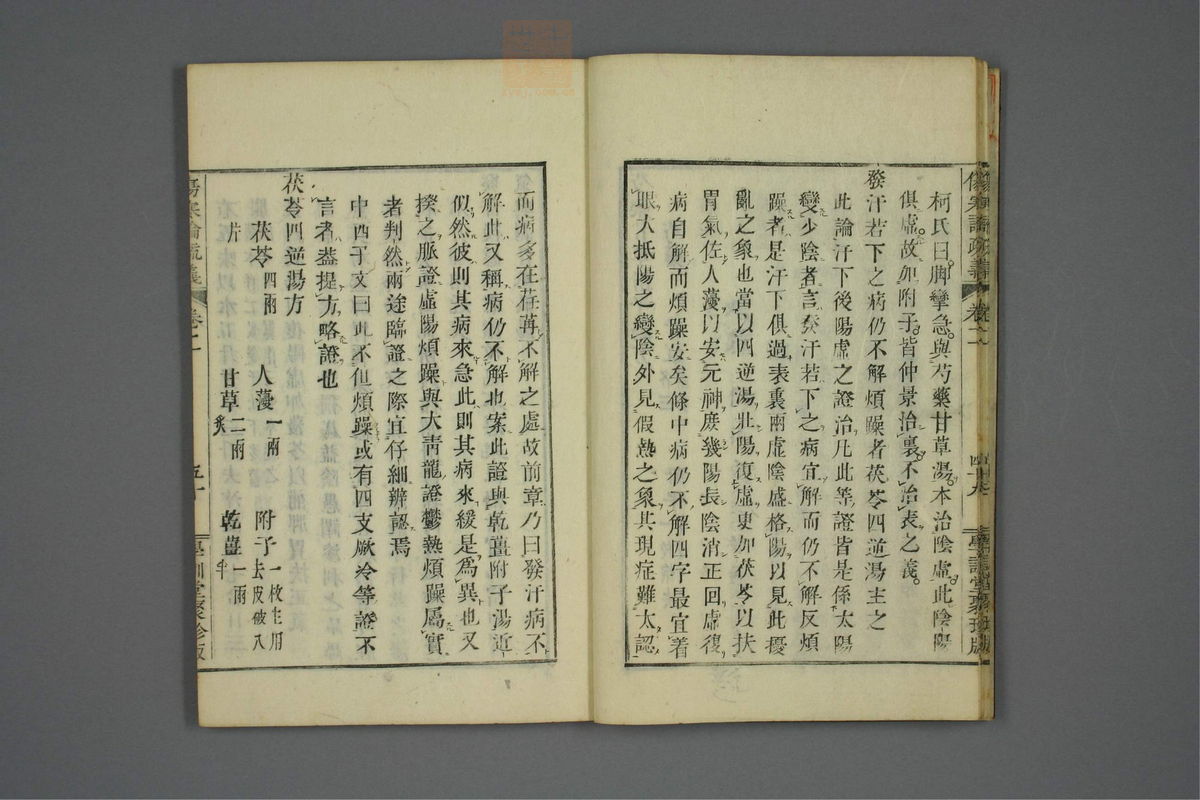 柯氏曰脚攣急與芍藥甘草湯本治陰虛此陰陽
俱虛故加附子皆仲景治裏不治表之義
發汗若下之病仍不解煩躁者茯苓四逆湯主之
此論汗下後陽虛之證治凡此等證皆是係太陽
變少陰者言發汗若下之病宜解而仍不解反煩
躁者是汗下俱過表裏兩虛陰盛格陽以見此擾
亂之象也當以四逆湯壯陽復虛更加茯苓以扶
胃氣佐人薓以安元神庶幾陽長陰消正回虛復
病自解而煩躁安矣條中病仍不解四字最宜着
眼大抵陽之變陰外見假熱之象其現症難太認
而病多在荏苒不解之處故前章乃曰發汗病不
解此又稱病仍不解也案此證與乾薑附子湯近
似然彼則其病來急此則其病來緩是爲異也又
揆之脈證虛陽煩躁與大青龍證鬱熱煩躁屬實
者判然兩途臨證之際宜仔細辨認焉
中西子文曰此不但煩躁或有四支厥冷等證不
言者蓋提方略證也
茯苓四逆湯方
茯苓四兩 人薓一兩 附子一枚生用去皮破八
片 甘草二兩炙 乾薑一兩半
傷寒論疏義 卷二 四十九 學訓堂聚珍版
傷寒論疏義 卷二 五十 學訓堂聚珍版